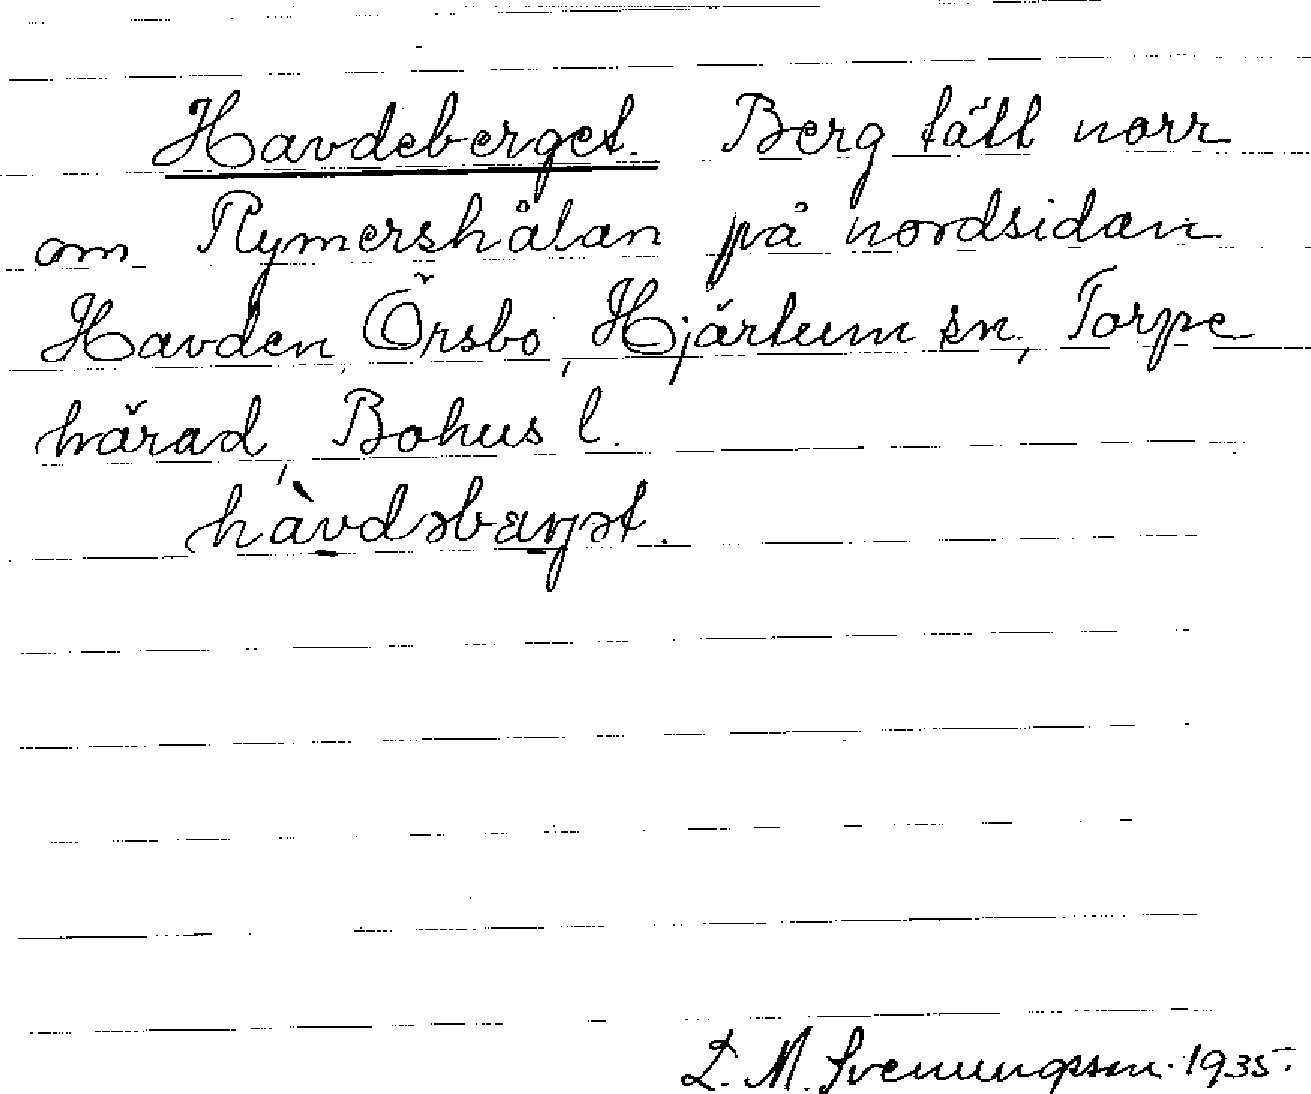 Havdeberget. Berg tätt norr
om Rymershålan på nordsidan
Havden, Örsbo, Hjärtum sn, Torpe
härad, Bohus l.
hàvdəbærjət.
L. M. Svenungsson. 1935.